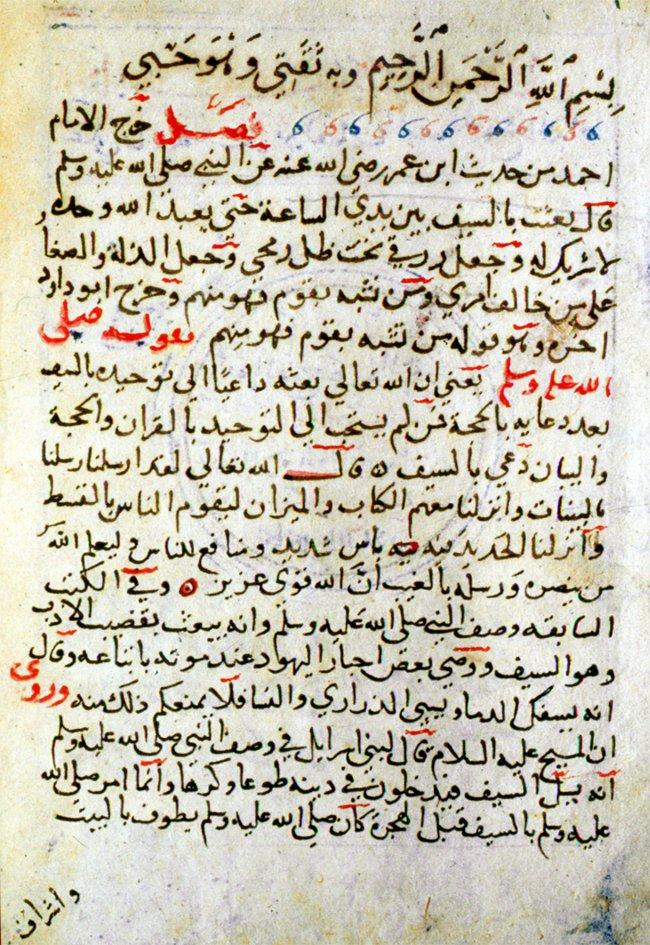 بِسْمِ ٱللَّهِ ٱلرَّحْمَنِ ٱلرَّحِيمِ وبه ثقتي وَهُوَ حَسْبي
فصل خرج الامام
احمد من حديث ابن عمر رضي الله عنه عن النبي صلي الله عليه وسلم
قال بعثت بالسيف بين يدي الساعة حتي يعبد الله وحده
لا شريك له وجعل رزقي تحت ظل رمحي وجعل الذلة والصغا
علي من خالف امري ومن تشبه بقوم فهو منهم وخرج ابو داود
اخره وهو قوله من تشبه بقوم فهو منهم فقوله صلي
الله عليه وسلم يعني ان الله تعالي بعثه داعيا الي توحيده بالسيف
بعد دعايه بالحجة فمن لم يستجب الي التوحيد بالقران والحجة
والبيان دعي بالسيف ٥ قال الله تعالي لقد ارسلنا رسلنا
بالبينات وانزلنا معهم الكتاب والميزان ليقوم الناس بالقسط
وانزلنا الحديد فيه باس شديد ومنافع للناس وليعلم الله
من ينصره ورسله بالغيب انَّ الله قوي عزيز ٥ وفي الكتب
السابقه وصف النبي صلي الله عليه وسلم وانه يبعث بقضيب الادب
وهو السيف ووصي بعض احبار اليهود عند موته باتباعه وقال
انه يسفك الدما ويسبي الذراري والنسا فلا يمنعكم ذلك منه وروي
ان المسيح عليه السلام قال لبني اسرايل في وصف النبي صلي الله عليه وسلم
انه يسل السيف فيدخلون في دينه طوعا وكرها وانما امر صلي الله
عليه وسلم بالسيف قبل الهجرة كان صلي الله عليه وسلم يطوف بالبيت
واشراف